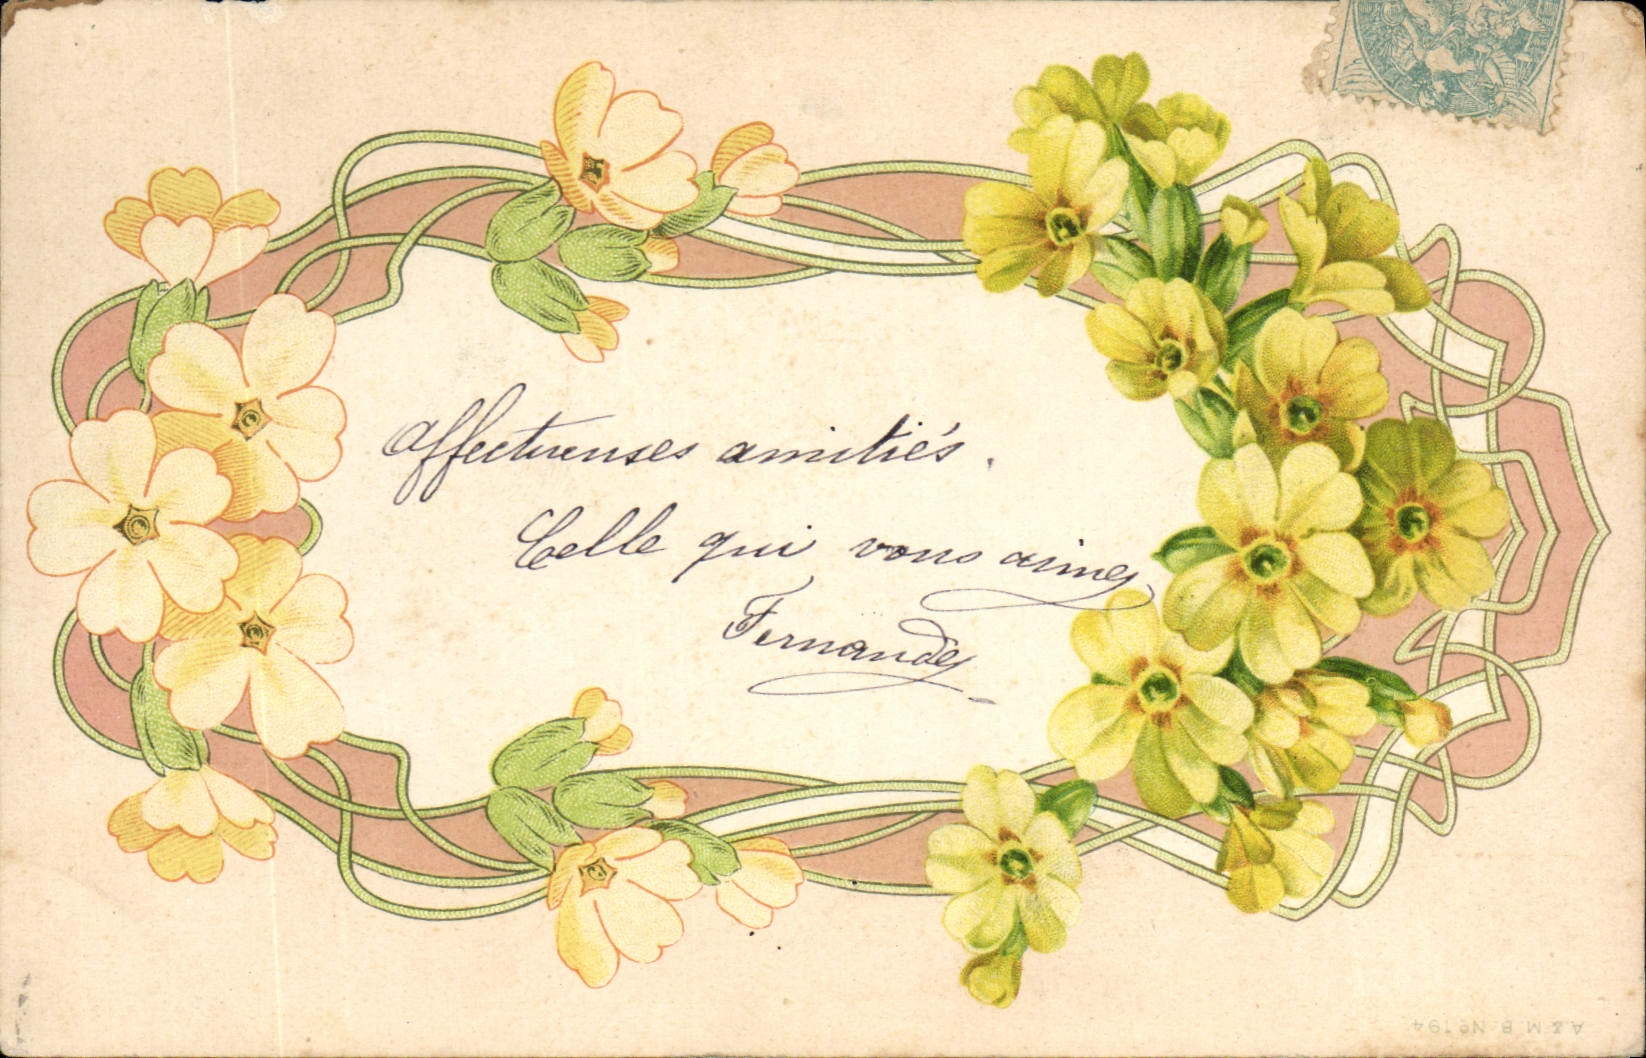 Affectueuses amitiés.
Celle qui vous aime
Fernande
A & M. B. No 194